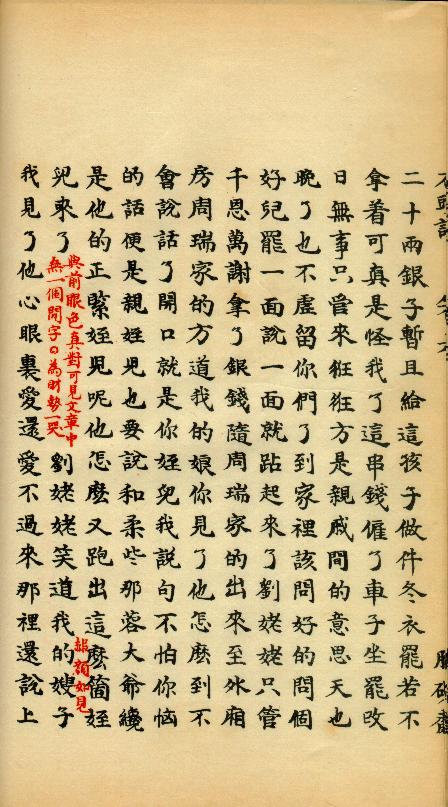 二十兩銀子暫且給這孩子做件冬衣罷若不
拿着可真是怪我了這串錢僱了車子坐罷改
日無事只管來狂狂方是親戚間的意思天也
晚了也不虛留你們了到家裡該問好的問個
好兒罷一面說一面就跕起來了劉姥姥只管
千恩萬謝拿了銀錢隨周瑞家的出來至外廂
房周瑞家的方道我的娘你見了他怎麽到不
會說話了開口就是你姪兒我說句不怕你惱
的話便是親姪兒也要說和柔些那蓉大爺纔
是他的正緊姪兒呢他怎麽又跑出這麽箇姪
兒來了
與前眼色真對可見文章中
無一個閒字曰為財勢一哭
劉姥姥笑道我的嫂子
赧顏如見
我見了他心眼裏愛還愛不過來那裡還說上